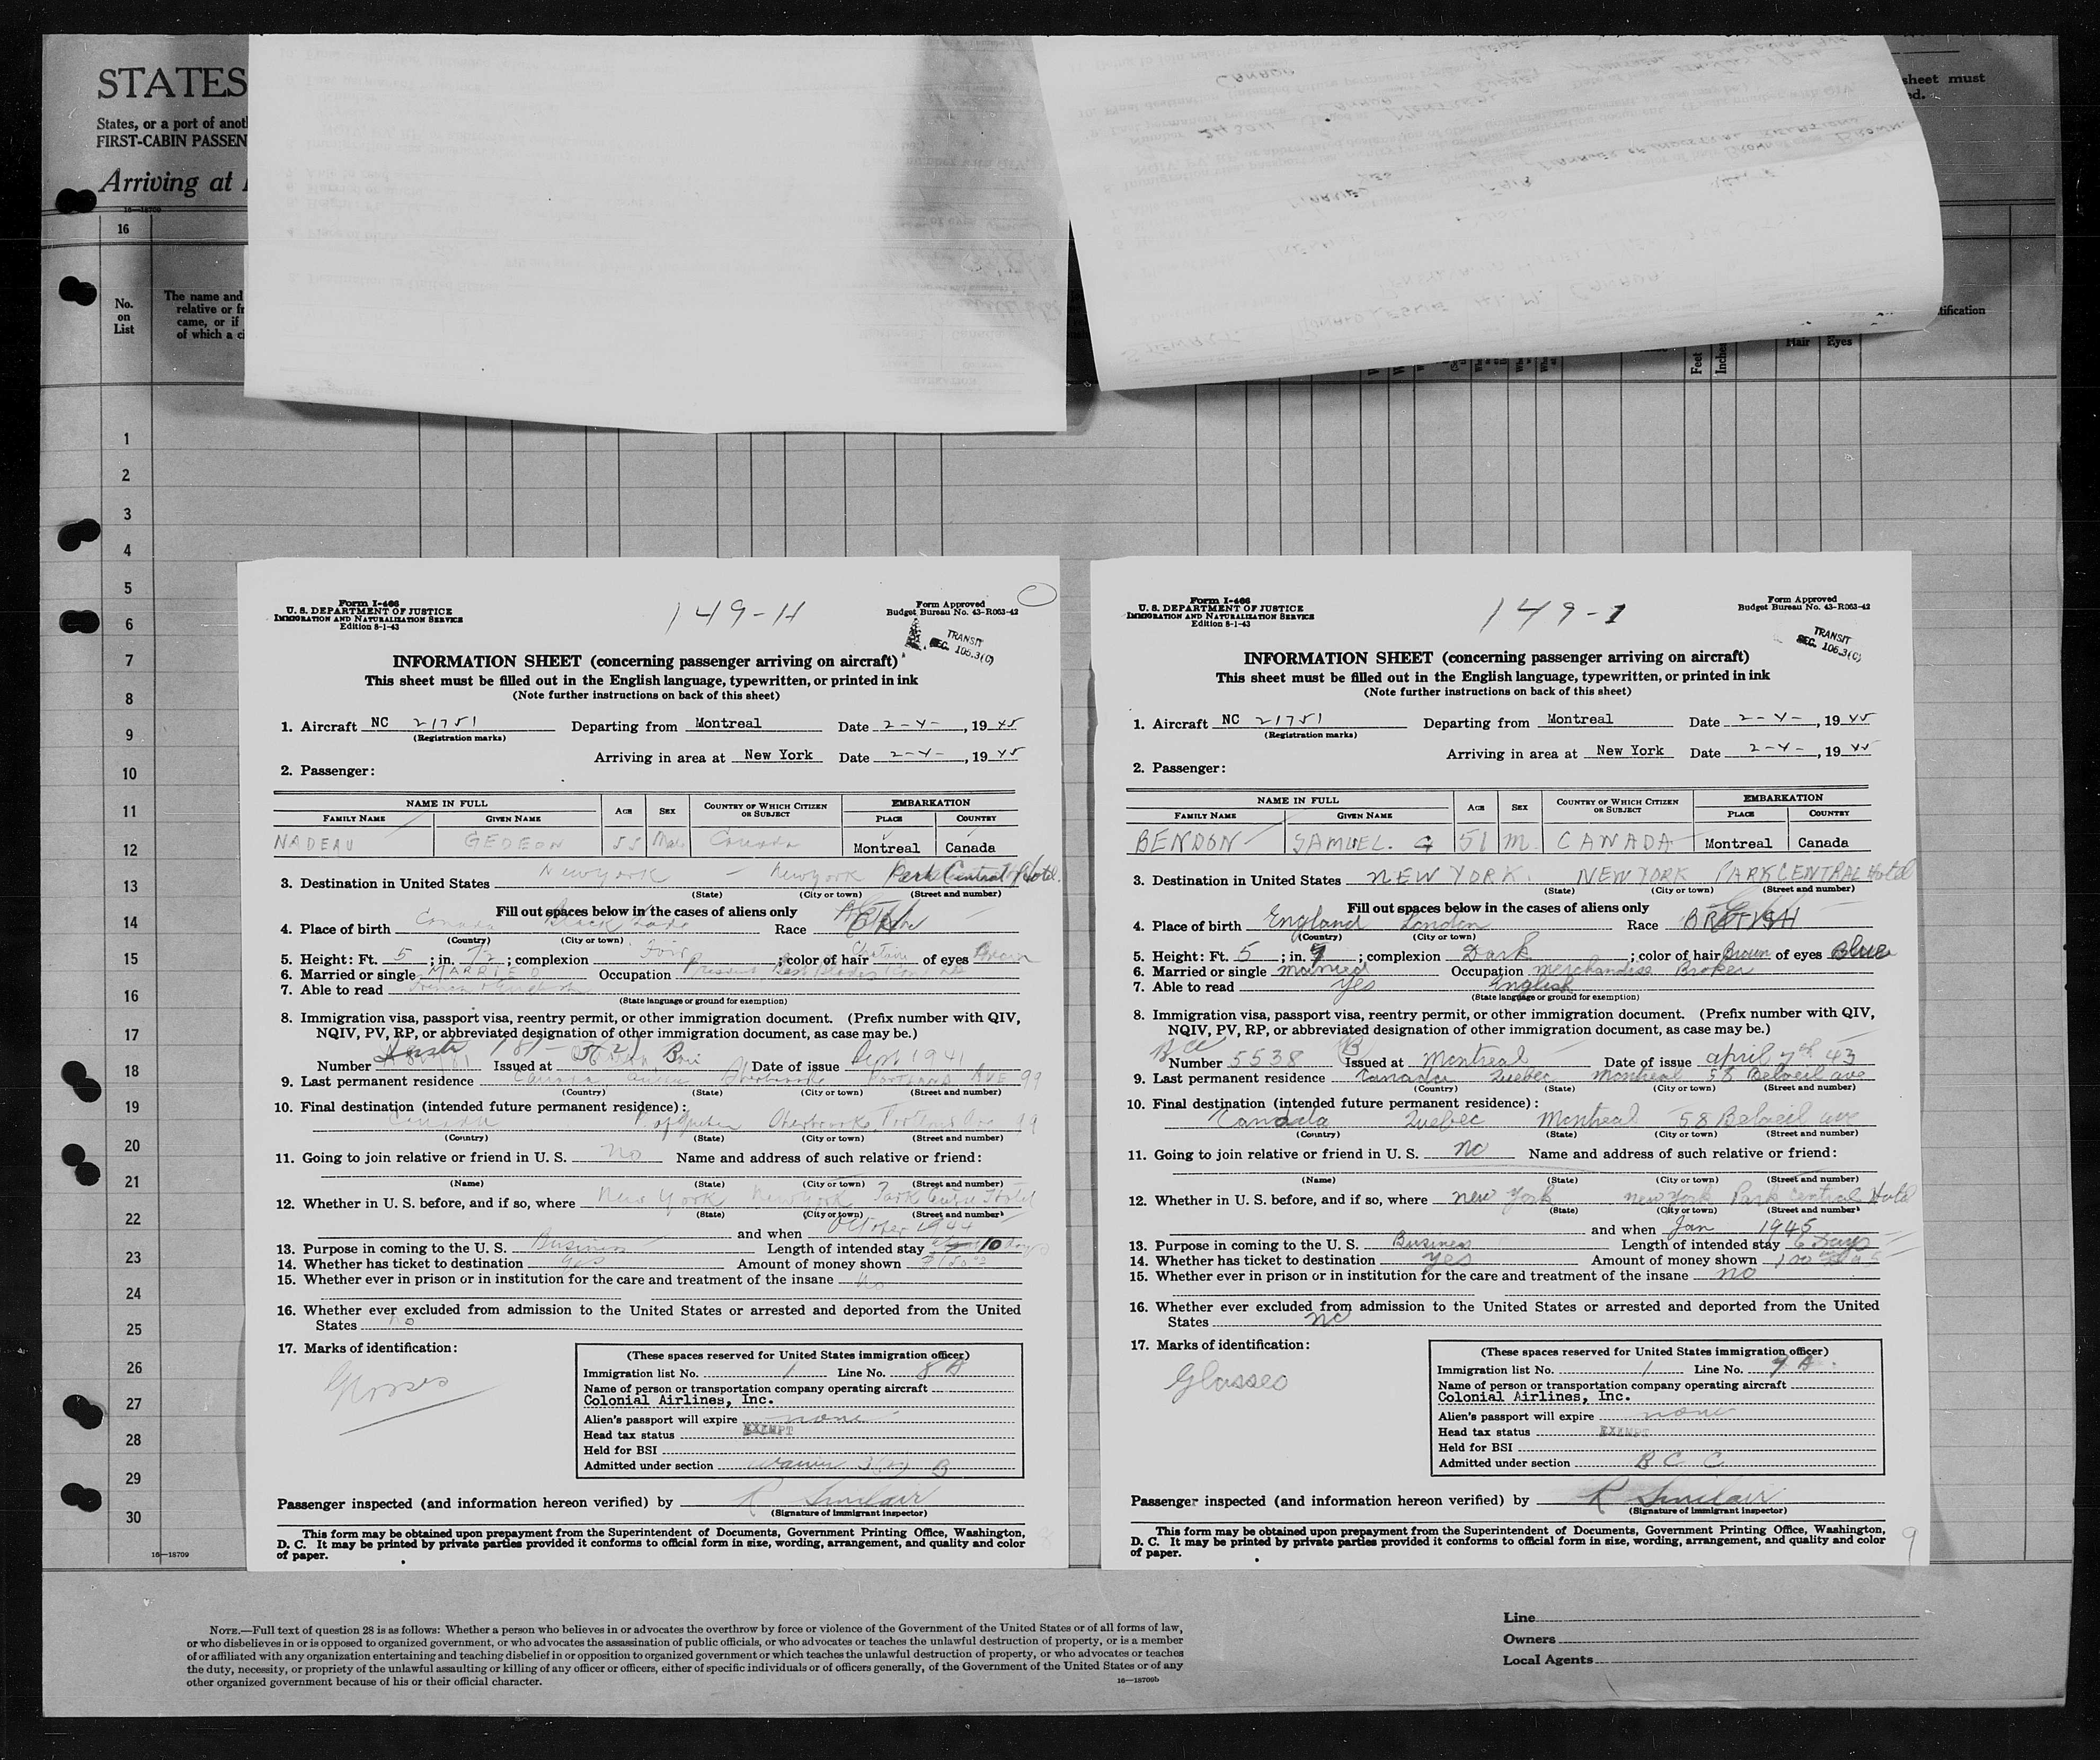 STATES
States, or a port of anot
FIRST-CABIN PASSEN
Arriving at
16—18709
16
No.
on
List
The name and
relative or fr
came, or if
of which a ci
sheet must
tification
Feet
Inches
Hair
Eyes
1
2
3
4
5
6
7
8
9
10
11
12
13
14
15
16
17
18
19
20
21
22
23
24
25
26
27
28
29
30
16—18709
Form I-466
U. S. DEPARTMENT OF JUSTICE
IMMIGRATION AND NATURALIZATION SERVICE
Edition 8-1-43
149-H
Form Approved
Budget Bureau No. 43-R063-42
TRANSIT
SEC. 105.3(C)
INFORMATION SHEET (concerning passenger arriving on aircraft)
This sheet must be filled out in the English language, typewritten, or printed in ink
(Note further instructions on back of this sheet)
1. Aircraft NC 21751 Departing from Montreal Date 2-4-, 1945
(Registration marks)
Arriving in area at New York Date 2-4-, 1945
2. Passenger:
NAME IN FULL AGE SEX COUNTRY OF WHICH CITIZEN OR SUBJECT EMBARKATION
FAMILY NAME GIVEN NAME PLACE COUNTRY
NADEAU GEDEON 55 Male Canada Montreal Canada
3. Destination in United States New York - New York Park Central Hotel
(State) (City or town) (Street and number)
Fill out spaces below in the cases of aliens only
4. Place of birth Canada Black Lake Race
(Country) (City or town)
5. Height: Ft. 5 ; in. 7½ ; complexion Fair ; color of hair of eyes
6. Married or single MARRIED Occupation President
7. Able to read French & English
(State language or ground for exemption)
8. Immigration visa, passport visa, reentry permit, or other immigration document. (Prefix number with QIV,
NQIV, PV, RP, or abbreviated designation of other immigration document, as case may be.)
Number Issued at Date of issue Sept 1941
9. Last permanent residence Canada Quebec Sherbrooke PORTLAND AVE 99
(Country) (State) (City or town) (Street and number)
10. Final destination (intended future permanent residence):
Canada P. of Quebec Sherbrooke Portland Ave 99
(Country) (State) (City or town) (Street and number)
11. Going to join relative or friend in U. S. No Name and address of such relative or friend:
(Name) (State) (City or town) (Street and number)
12. Whether in U. S. before, and if so, where New York New York Park Central Hotel
(State) (City or town) (Street and number)
and when October 1944
13. Purpose in coming to the U. S. Business Length of intended stay 10 days
14. Whether has ticket to destination yes Amount of money shown
15. Whether ever in prison or in institution for the care and treatment of the insane No
16. Whether ever excluded from admission to the United States or arrested and deported from the United
States No
17. Marks of identification:
Glasses
(These spaces reserved for United States immigration officer)
Immigration list No. 1 Line No. 8 A
Name of person or transportation company operating aircraft
Colonial Airlines, Inc.
Alien's passport will expire none
Head tax status EXEMPT
Held for BSI
Admitted under section
Passenger inspected (and information hereon verified) by R Sinclair
(Signature of immigrant inspector)
This form may be obtained upon prepayment from the Superintendent of Documents, Government Printing Office, Washington,
D. C. It may be printed by private parties provided it conforms to official form in size, wording, arrangement, and quality and color
of paper.
Form I-466
U. S. DEPARTMENT OF JUSTICE
IMMIGRATION AND NATURALIZATION SERVICE
Edition 8-1-43
149-1
Form Approved
Budget Bureau No. 43-R063-42
TRANSIT
SEC. 105.3(C)
INFORMATION SHEET (concerning passenger arriving on aircraft)
This sheet must be filled out in the English language, typewritten, or printed in ink
(Note further instructions on back of this sheet)
1. Aircraft NC 21751 Departing from Montreal Date 2-4-, 1945
(Registration marks)
Arriving in area at New York Date 2-4-, 1945
2. Passenger:
NAME IN FULL AGE SEX COUNTRY OF WHICH CITIZEN OR SUBJECT EMBARKATION
FAMILY NAME GIVEN NAME PLACE COUNTRY
BENDON SAMUEL. G 51 M. CANADA Montreal Canada
3. Destination in United States NEW YORK. NEW YORK PARK CENTRAL Hotel
(State) (City or town) (Street and number)
Fill out spaces below in the cases of aliens only
4. Place of birth England London Race BRITISH
(Country) (City or town)
5. Height: Ft. 5 ; in. 7 ; complexion Dark ; color of hair Brown of eyes Blue
6. Married or single married Occupation merchandise Broker
7. Able to read yes English
(State language or ground for exemption)
8. Immigration visa, passport visa, reentry permit, or other immigration document. (Prefix number with QIV,
NQIV, PV, RP, or abbreviated designation of other immigration document, as case may be.)
Number 5538 Issued at Montreal Date of issue april 7th 43
9. Last permanent residence Canada Quebec Montreal 58 Beloeil ave
(Country) (State) (City or town) (Street and number)
10. Final destination (intended future permanent residence):
Canada Quebec Montreal 58 Beloeil ave
(Country) (State) (City or town) (Street and number)
11. Going to join relative or friend in U. S. no Name and address of such relative or friend:
(Name) (State) (City or town) (Street and number)
12. Whether in U. S. before, and if so, where new York new York Park Central Hotel
(State) (City or town) (Street and number)
and when Jan 1945
13. Purpose in coming to the U. S. Business Length of intended stay 6 Days
14. Whether has ticket to destination yes Amount of money shown
15. Whether ever in prison or in institution for the care and treatment of the insane no
16. Whether ever excluded from admission to the United States or arrested and deported from the United
States no
17. Marks of identification:
Glasses
(These spaces reserved for United States immigration officer)
Immigration list No. 1 Line No. 9 A
Name of person or transportation company operating aircraft
Colonial Airlines, Inc.
Alien's passport will expire none
Head tax status EXEMPT
Held for BSI
Admitted under section B C C
Passenger inspected (and information hereon verified) by R Sinclair
(Signature of immigrant inspector)
This form may be obtained upon prepayment from the Superintendent of Documents, Government Printing Office, Washington,
D. C. It may be printed by private parties provided it conforms to official form in size, wording, arrangement, and quality and color
of paper.
9
NOTE.—Full text of question 28 is as follows: Whether a person who believes in or advocates the overthrow by force or violence of the Government of the United States or of all forms of law,
or who disbelieves in or is opposed to organized government, or who advocates the assassination of public officials, or who advocates or teaches the unlawful destruction of property, or is a member
of or affiliated with any organization entertaining and teaching disbelief in or opposition to organized government or which teaches the unlawful destruction of property, or who advocates or teaches
the duty, necessity, or propriety of the unlawful assaulting or killing of any officer or officers, either of specific individuals or of officers generally, of the Government of the United States or of any
other organized government because of his or their official character.
16—18709b
Line
Owners
Local Agents